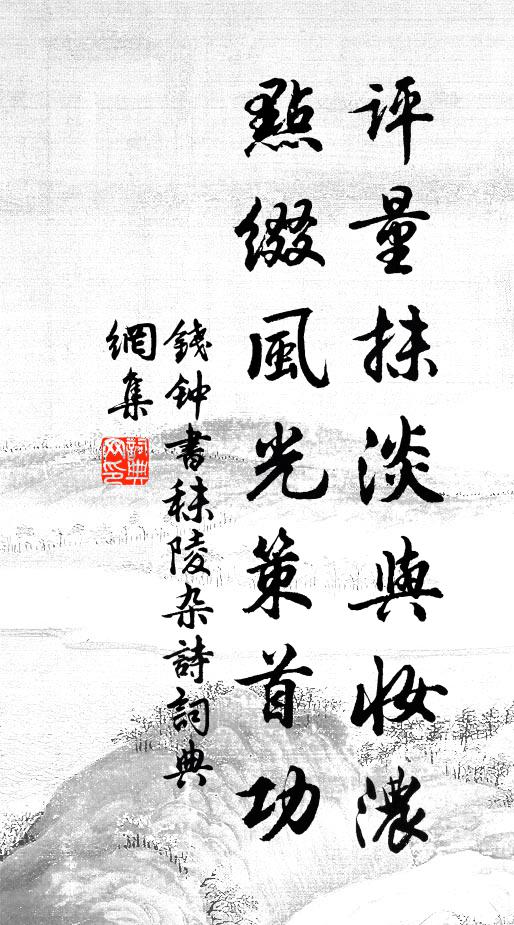 评量抹淡與妆濃
點綴風光策首功
錢钟書秣陵杂詩詞典
網集
詞典网印